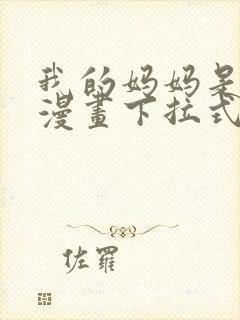 我的妈妈是
漫畫下拉式
佐羅